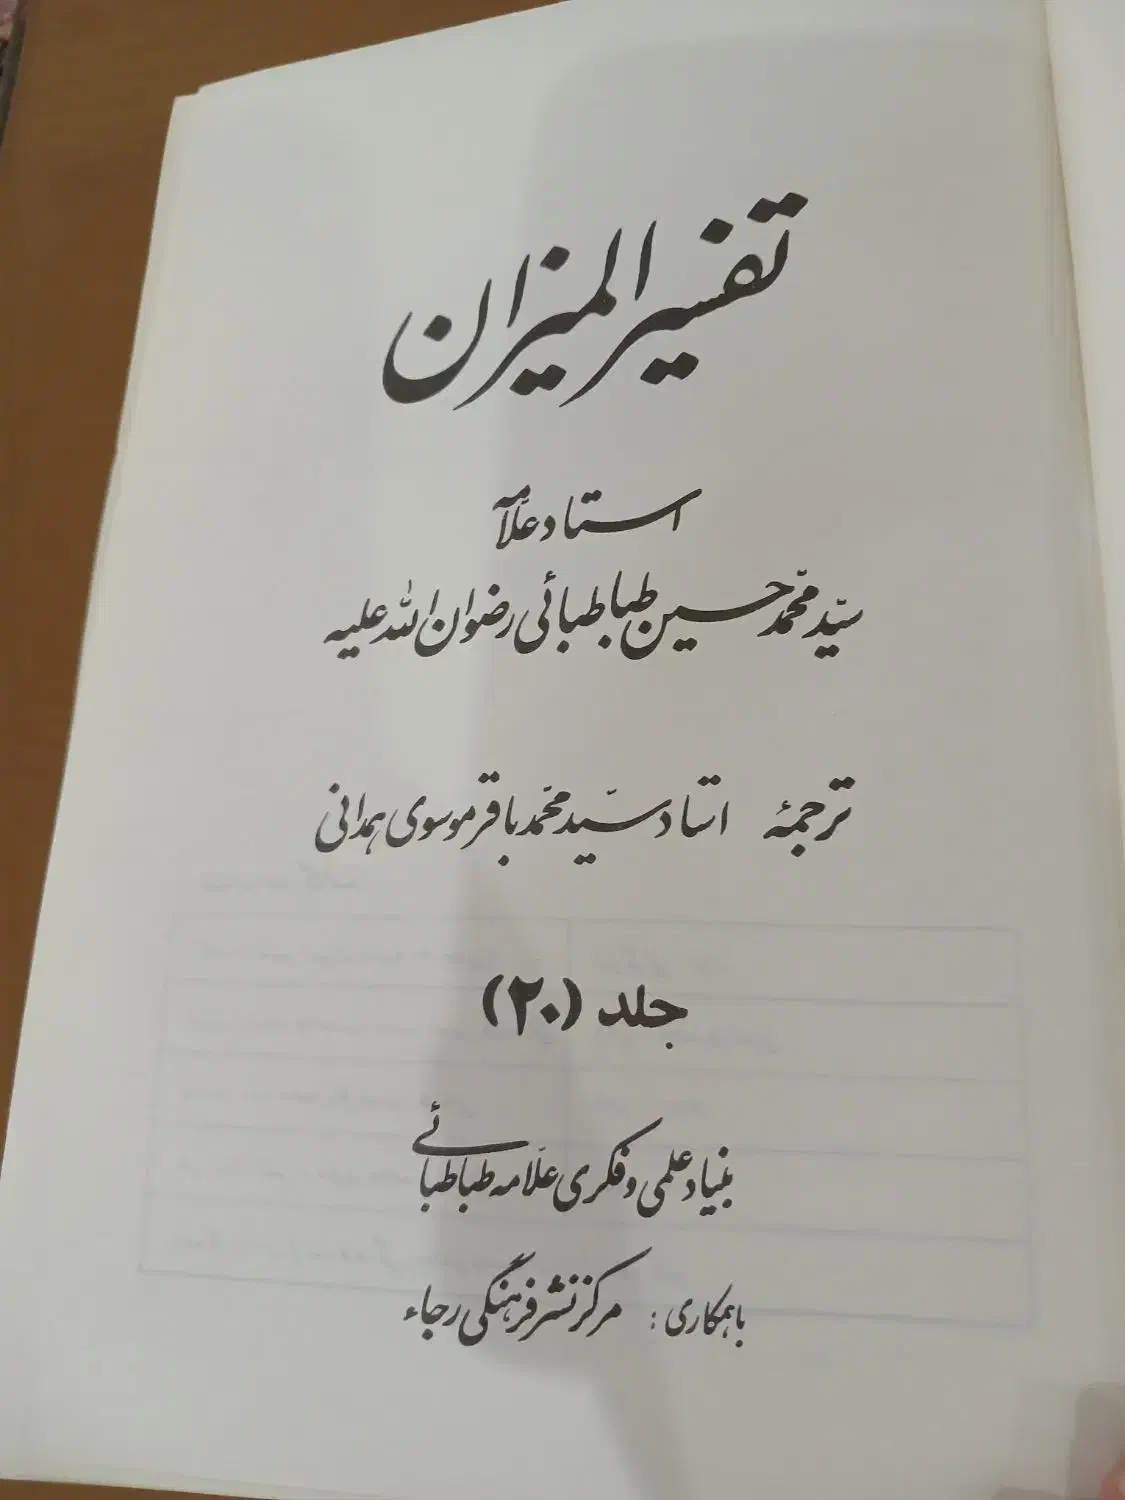 تفسیر المیزان
استاد علامه
سیّد محمّد حسین طباطبائی رضوان الله علیه
ترجمهٔ استاد سیّد محمّد باقر موسوی همدانی
جلد (۲۰)
بنیاد علمی و فکری علّامه طباطبائی
با همکاری : مرکز نشر فرهنگی رجاء